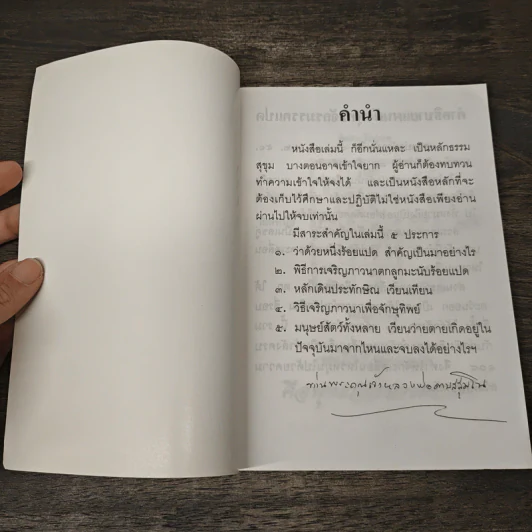 คำนำ
หนังสือเล่มนี้ ก็อีกนั่นแหละ เป็นหลักธรรม
สุขุม บางตอนอาจเข้าใจยาก ผู้อ่านก็ต้องทบทวน
ทำความเข้าใจให้จงได้ และเป็นหนังสือหลักที่จะ
ต้องเก็บไว้ศึกษาและปฏิบัติไม่ใช่หนังสือเพียงอ่าน
ผ่านไปให้จบเท่านั้น
มีสาระสำคัญในเล่มนี้ ๕ ประการ
๑. ว่าด้วยหนึ่งร้อยแปด สำคัญเป็นมาอย่างไร
๒. พิธีการเจริญภาวนาตกลูกมะนับร้อยแปด
๓. หลักเดินประทักษิณ เวียนเทียน
๔. วิธีเจริญภาวนาเพื่อจักษุทิพย์
๕. มนุษย์สัตว์ทั้งหลาย เวียนว่ายตายเกิดอยู่ใน
ปัจจุบันมาจากไหนและจบลงได้อย่างไรฯ